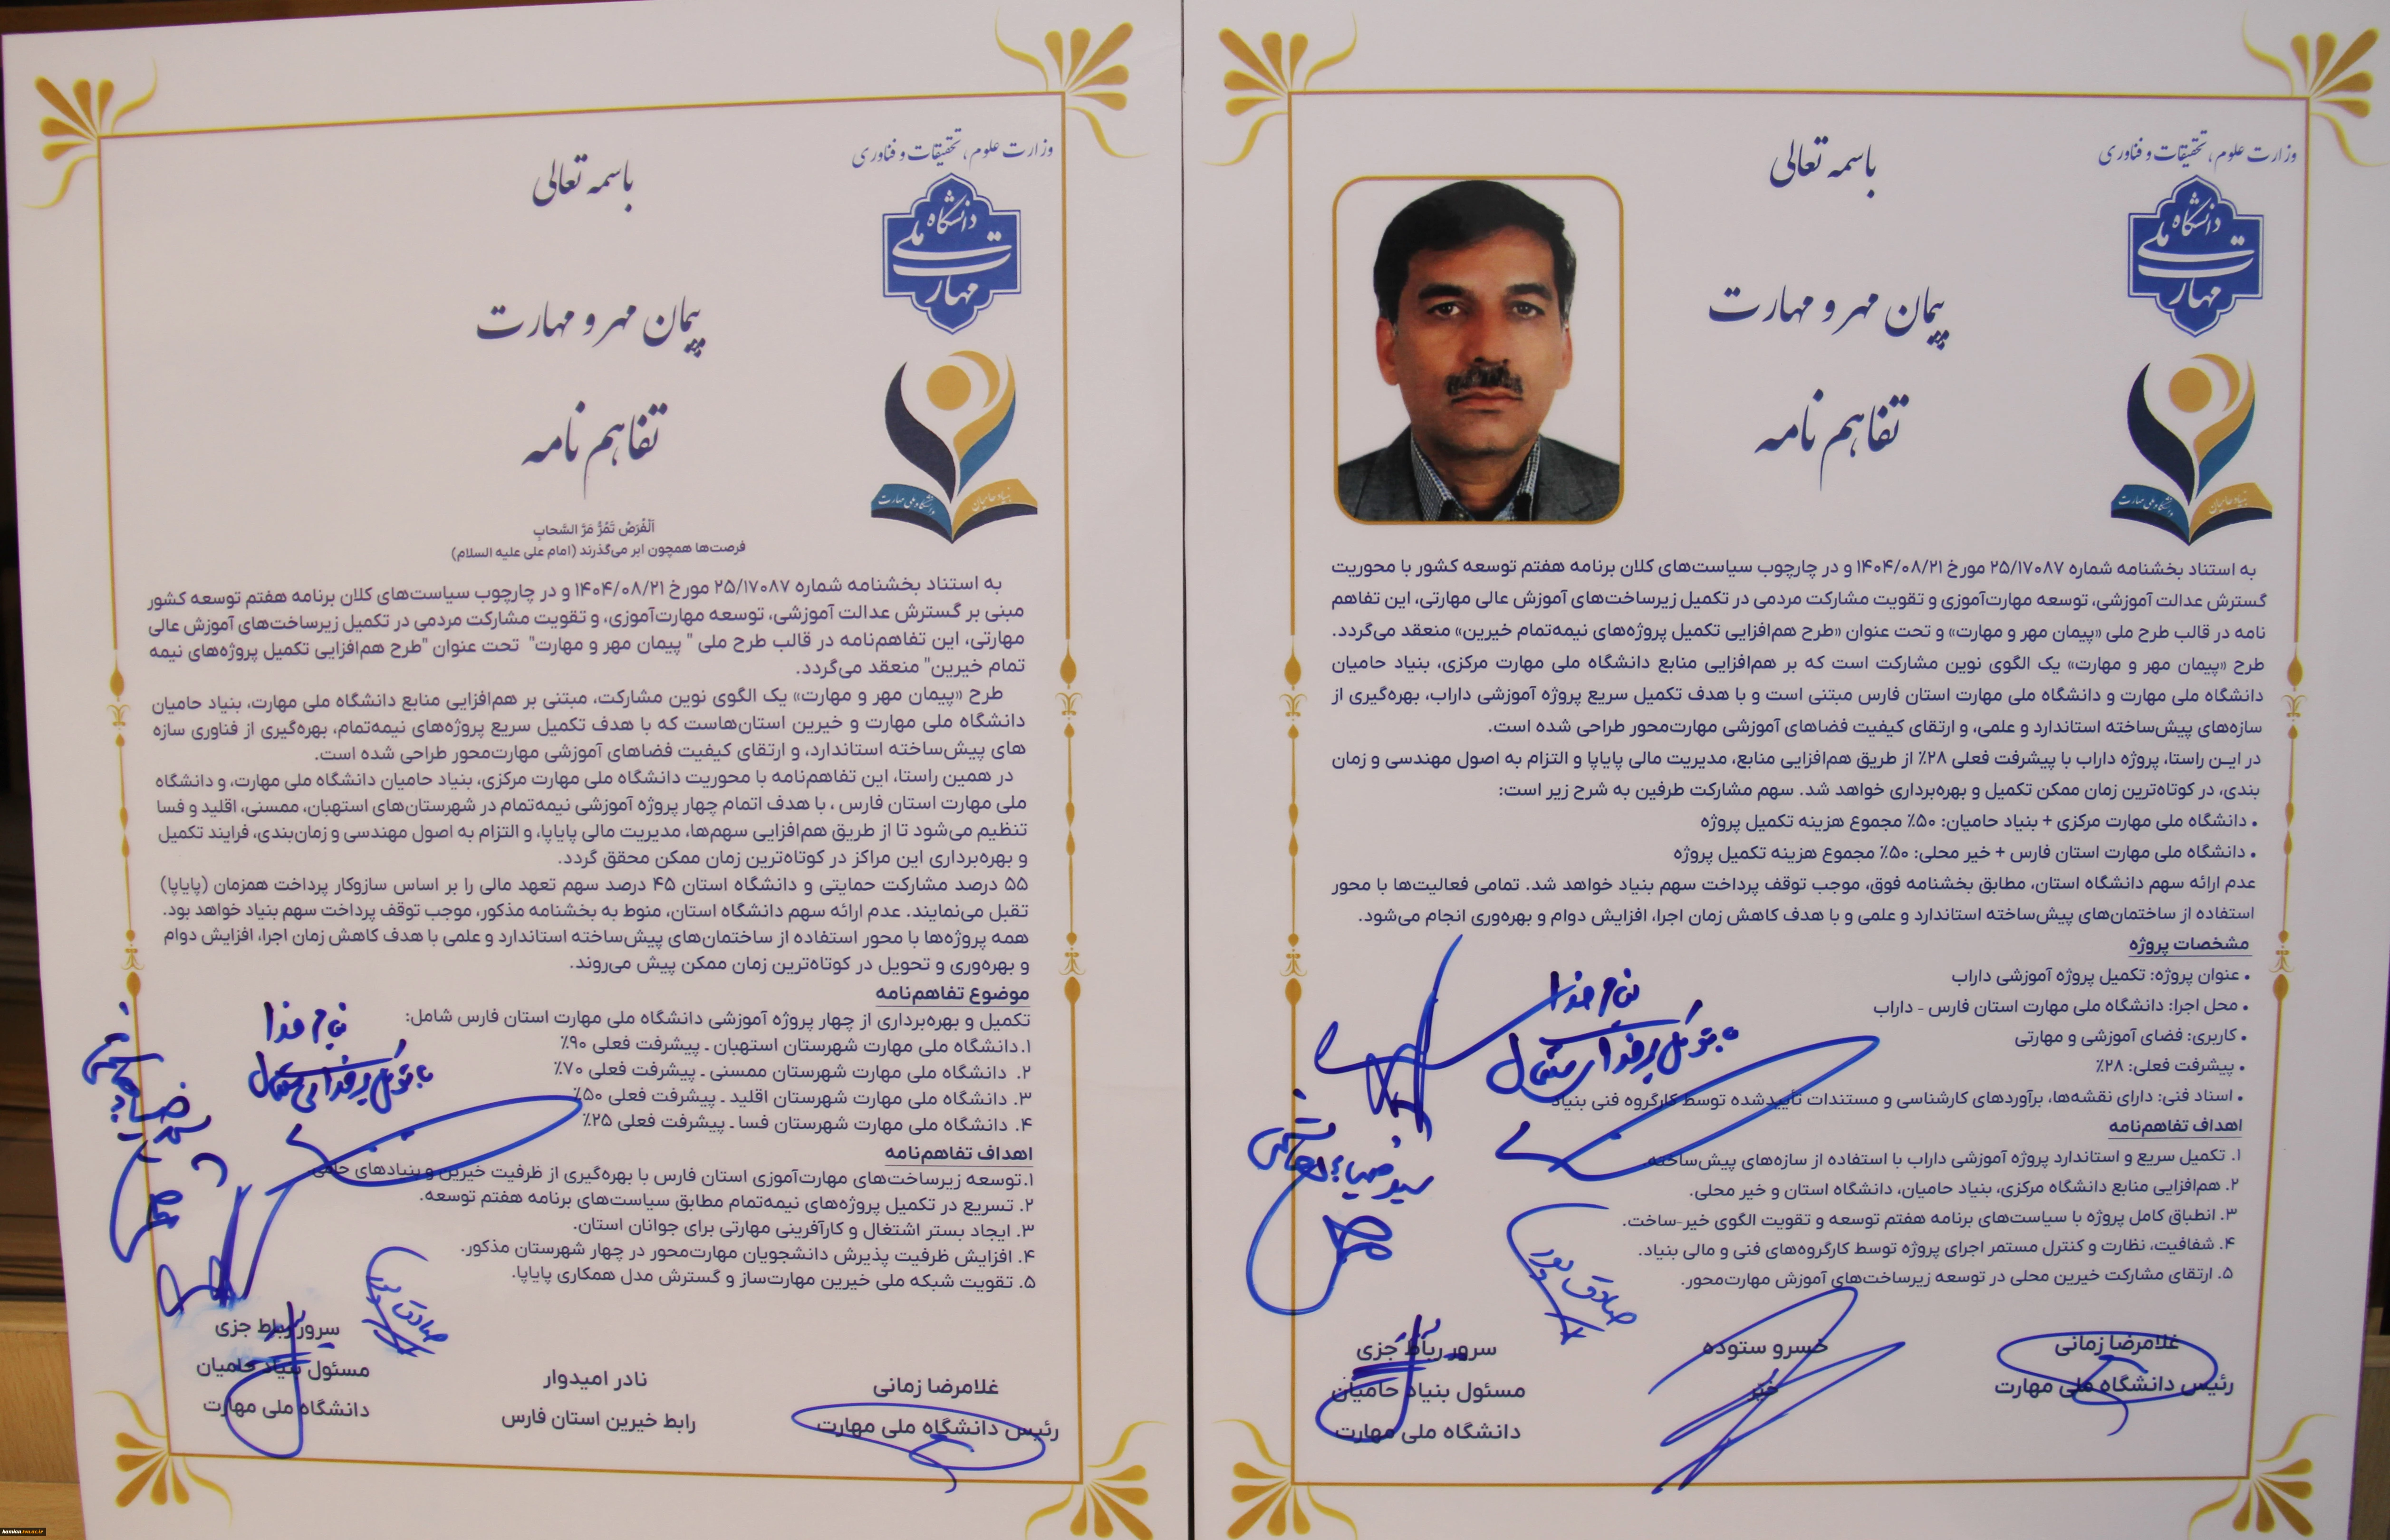 وزارت علوم، تحقیقات و فناوری
دانشگاه ملی مهارت
بنیاد حامیان دانشگاه ملی مهارت
باسمه تعالی
پیمان مهر و مهارت
تفاهم نامه
به استناد بخشنامه شماره ۲۵/۱۷۰۸۷ مورخ ۱۴۰۴/۰۸/۲۱ و در چارچوب سیاست‌های کلان برنامه هفتم توسعه کشور با محوریت
گسترش عدالت آموزشی، توسعه مهارت‌آموزی و تقویت مشارکت مردمی در تکمیل زیرساخت‌های آموزش عالی مهارتی، این تفاهم
نامه در قالب طرح ملی «پیمان مهر و مهارت» و تحت عنوان «طرح هم‌افزایی تکمیل پروژه‌های نیمه‌تمام خیرین» منعقد می‌گردد.
طرح «پیمان مهر و مهارت» یک الگوی نوین مشارکت است که بر هم‌افزایی منابع دانشگاه ملی مهارت مرکزی، بنیاد حامیان
دانشگاه ملی مهارت و دانشگاه ملی مهارت استان فارس مبتنی است و با هدف تکمیل سریع پروژه آموزشی داراب، بهره‌گیری از
سازه‌های پیش‌ساخته استاندارد و علمی، و ارتقای کیفیت فضاهای آموزشی مهارت‌محور طراحی شده است.
در این راستا، پروژه داراب با پیشرفت فعلی ۲۸٪ از طریق هم‌افزایی منابع، مدیریت مالی پایاپا و التزام به اصول مهندسی و زمان
بندی، در کوتاه‌ترین زمان ممکن تکمیل و بهره‌برداری خواهد شد. سهم مشارکت طرفین به شرح زیر است:
• دانشگاه ملی مهارت مرکزی + بنیاد حامیان: ۵۰٪ مجموع هزینه تکمیل پروژه
• دانشگاه ملی مهارت استان فارس + خیر محلی: ۵۰٪ مجموع هزینه تکمیل پروژه
عدم ارائه سهم دانشگاه استان، مطابق بخشنامه فوق، موجب توقف پرداخت سهم بنیاد خواهد شد. تمامی فعالیت‌ها با محور
استفاده از ساختمان‌های پیش‌ساخته استاندارد و علمی و با هدف کاهش زمان اجرا، افزایش دوام و بهره‌وری انجام می‌شود.
مشخصات پروژه
• عنوان پروژه: تکمیل پروژه آموزشی داراب
• محل اجرا: دانشگاه ملی مهارت استان فارس - داراب
• کاربری: فضای آموزشی و مهارتی
• پیشرفت فعلی: ۲۸٪
• اسناد فنی: دارای نقشه‌ها، برآوردهای کارشناسی و مستندات تأییدشده توسط کارگروه فنی بنیاد
اهداف تفاهم‌نامه
۱. تکمیل سریع و استاندارد پروژه آموزشی داراب با استفاده از سازه‌های پیش‌ساخته.
۲. هم‌افزایی منابع دانشگاه مرکزی، بنیاد حامیان، دانشگاه استان و خیر محلی.
۳. انطباق کامل پروژه با سیاست‌های برنامه هفتم توسعه و تقویت الگوی خیر-ساخت.
۴. شفافیت، نظارت و کنترل مستمر اجرای پروژه توسط کارگروه‌های فنی و مالی بنیاد.
۵. ارتقای مشارکت خیرین محلی در توسعه زیرساخت‌های آموزش مهارت‌محور.
بنام خدا
با توکل بر خدای متعال
صادق پور
غلامرضا زمانی
رئیس دانشگاه ملی مهارت
خسرو ستوده
خیر
سرور رباط جزی
مسئول بنیاد حامیان
دانشگاه ملی مهارت
وزارت علوم، تحقیقات و فناوری
دانشگاه ملی مهارت
بنیاد حامیان دانشگاه ملی مهارت
باسمه تعالی
پیمان مهر و مهارت
تفاهم نامه
اَلْفُرَصُ تَمُرُّ مَرَّ السَّحابِ
فرصت‌ها همچون ابر می‌گذرند (امام علی علیه السلام)
به استناد بخشنامه شماره ۲۵/۱۷۰۸۷ مورخ ۱۴۰۴/۰۸/۲۱ و در چارچوب سیاست‌های کلان برنامه هفتم توسعه کشور
مبنی بر گسترش عدالت آموزشی، توسعه مهارت‌آموزی، و تقویت مشارکت مردمی در تکمیل زیرساخت‌های آموزش عالی
مهارتی، این تفاهم‌نامه در قالب طرح ملی " پیمان مهر و مهارت" تحت عنوان "طرح هم‌افزایی تکمیل پروژه‌های نیمه
تمام خیرین" منعقد می‌گردد.
طرح «پیمان مهر و مهارت» یک الگوی نوین مشارکت، مبتنی بر هم‌افزایی منابع دانشگاه ملی مهارت، بنیاد حامیان
دانشگاه ملی مهارت و خیرین استان‌هاست که با هدف تکمیل سریع پروژه‌های نیمه‌تمام، بهره‌گیری از فناوری سازه
های پیش‌ساخته استاندارد، و ارتقای کیفیت فضاهای آموزشی مهارت‌محور طراحی شده است.
در همین راستا، این تفاهم‌نامه با محوریت دانشگاه ملی مهارت مرکزی، بنیاد حامیان دانشگاه ملی مهارت، و دانشگاه
ملی مهارت استان فارس ، با هدف اتمام چهار پروژه آموزشی نیمه‌تمام در شهرستان‌های استهبان، ممسنی، اقلید و فسا
تنظیم می‌شود تا از طریق هم‌افزایی سهم‌ها، مدیریت مالی پایاپا، و التزام به اصول مهندسی و زمان‌بندی، فرایند تکمیل
و بهره‌برداری این مراکز در کوتاه‌ترین زمان ممکن محقق گردد.
۵۵ درصد مشارکت حمایتی و دانشگاه استان ۴۵ درصد سهم تعهد مالی را بر اساس سازوکار پرداخت همزمان (پایاپا)
تقبل می‌نمایند. عدم ارائه سهم دانشگاه استان، منوط به بخشنامه مذکور، موجب توقف پرداخت سهم بنیاد خواهد بود.
همه پروژه‌ها با محور استفاده از ساختمان‌های پیش‌ساخته استاندارد و علمی با هدف کاهش زمان اجرا، افزایش دوام
و بهره‌وری و تحویل در کوتاه‌ترین زمان ممکن پیش می‌روند.
موضوع تفاهم‌نامه
تکمیل و بهره‌برداری از چهار پروژه آموزشی دانشگاه ملی مهارت استان فارس شامل:
۱. دانشگاه ملی مهارت شهرستان استهبان ـ پیشرفت فعلی ۹۰٪
۲. دانشگاه ملی مهارت شهرستان ممسنی ـ پیشرفت فعلی ۷۰٪
۳. دانشگاه ملی مهارت شهرستان اقلید ـ پیشرفت فعلی ۵۰٪
۴. دانشگاه ملی مهارت شهرستان فسا ـ پیشرفت فعلی ۲۵٪
اهداف تفاهم‌نامه
۱. توسعه زیرساخت‌های مهارت‌آموزی استان فارس با بهره‌گیری از ظرفیت خیرین و بنیادهای حامی.
۲. تسریع در تکمیل پروژه‌های نیمه‌تمام مطابق سیاست‌های برنامه هفتم توسعه.
۳. ایجاد بستر اشتغال و کارآفرینی مهارتی برای جوانان استان.
۴. افزایش ظرفیت پذیرش دانشجویان مهارت‌محور در چهار شهرستان مذکور.
۵. تقویت شبکه ملی خیرین مهارت‌ساز و گسترش مدل همکاری پایاپا.
بنام خدا
با توکل بر خدای متعال
صادق پور
غلامرضا زمانی
رئیس دانشگاه ملی مهارت
نادر امیدوار
رابط خیرین استان فارس
سرور رباط جزی
مسئول بنیاد حامیان
دانشگاه ملی مهارت